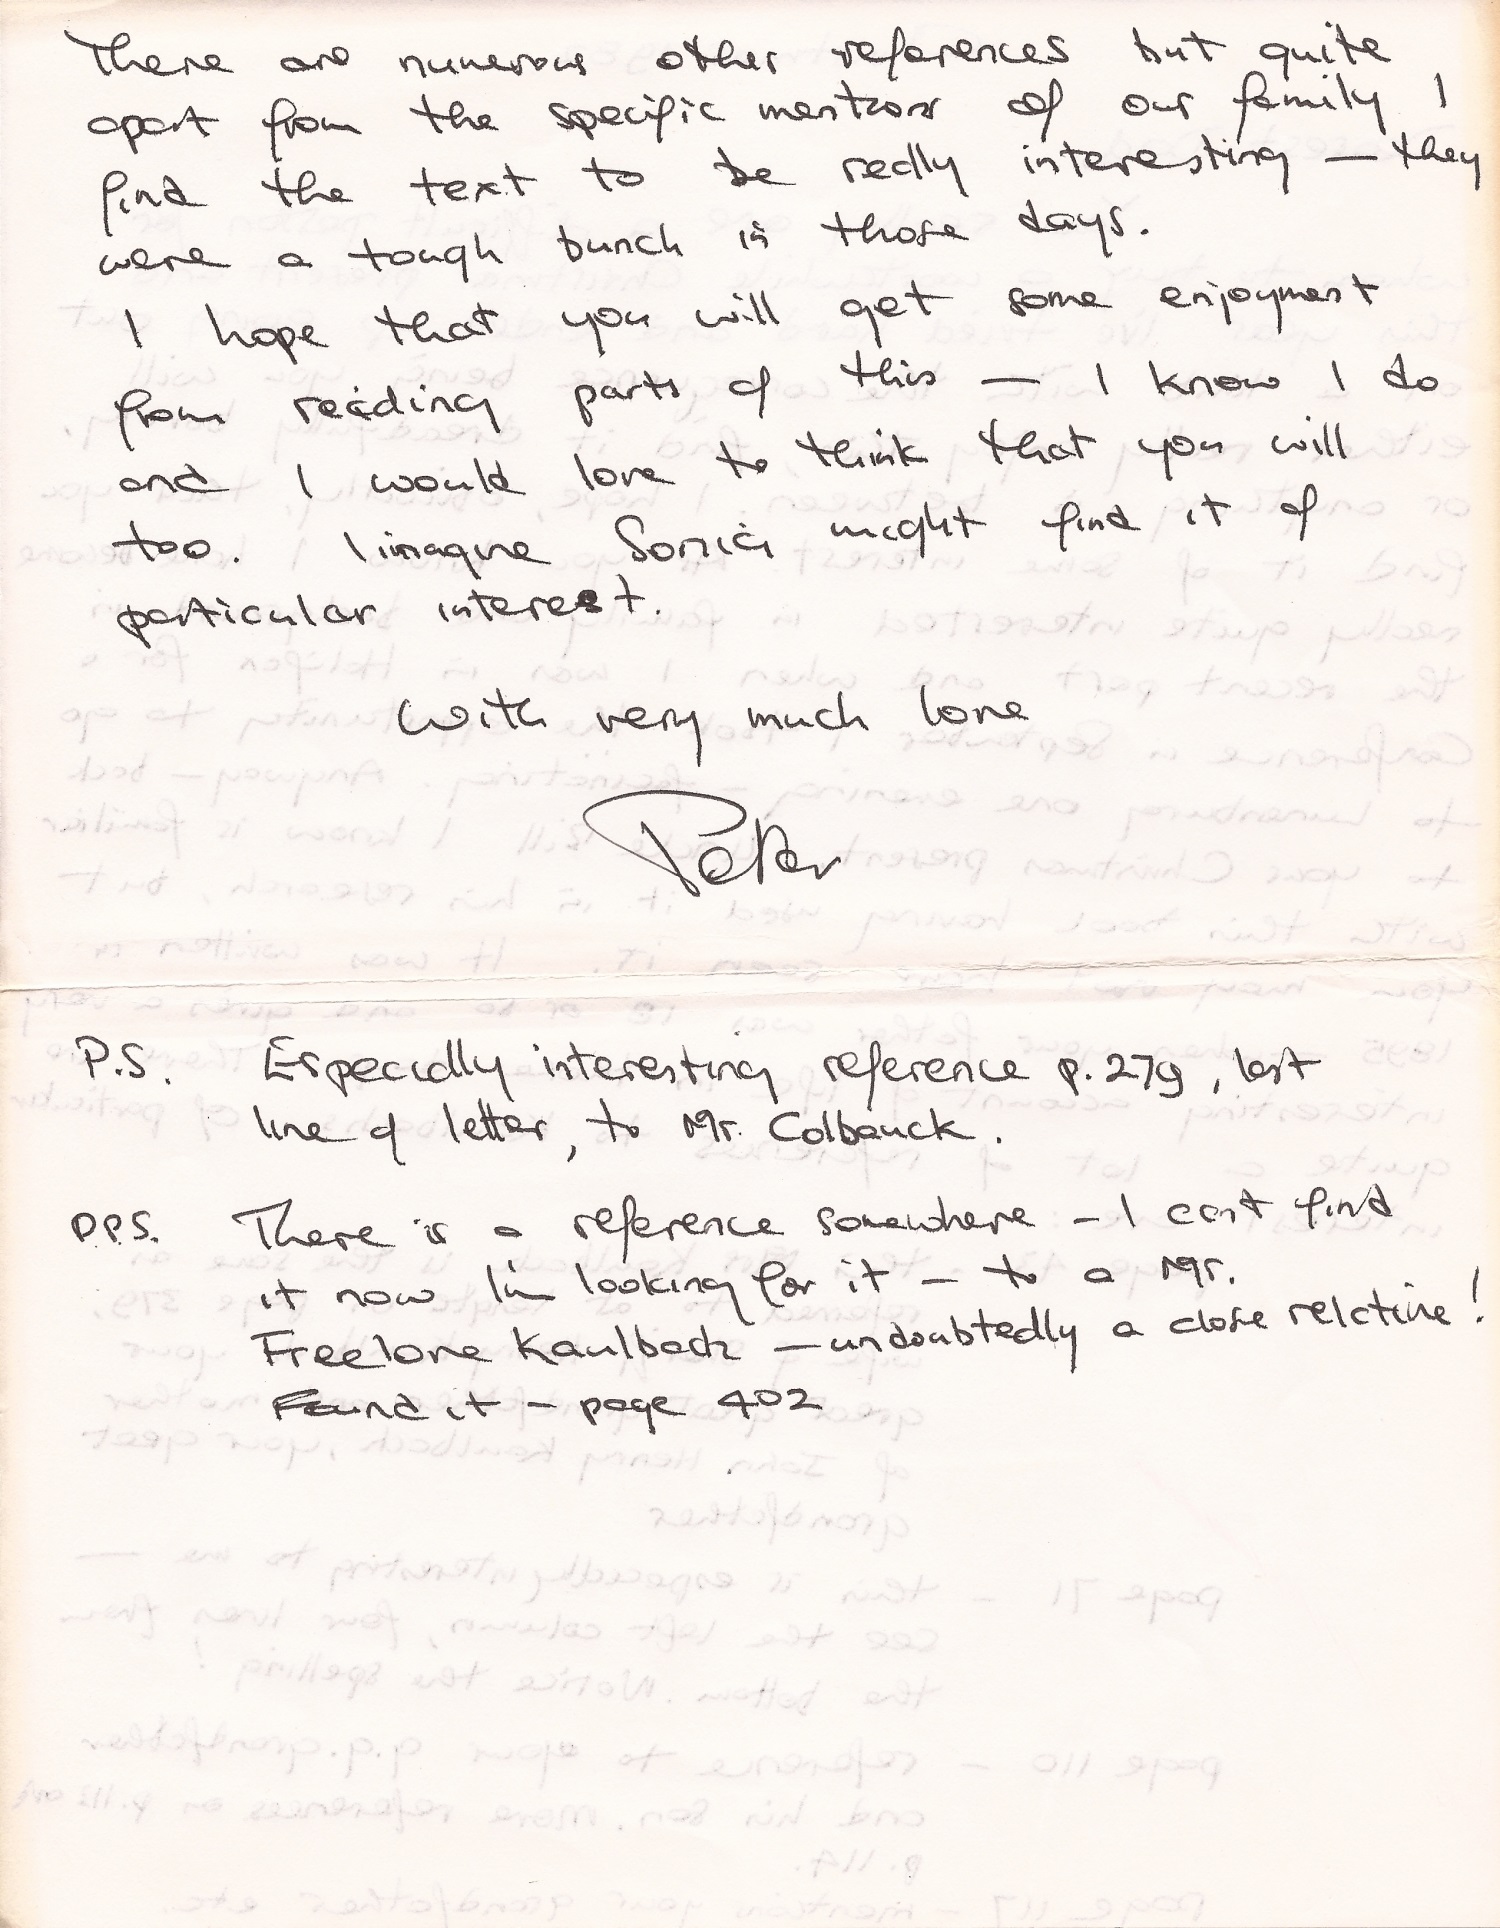 There are numerous other references but quite
apart from the specific mentions of our family I
find the text to be really interesting — they
were a tough bunch in those days.
I hope that you will get some enjoyment
from reading parts of this — I know I do
and I would love to think that you will
too. I imagine Sonia might find it of
particular interest.
With very much love
Peter
P.S. Especially interesting reference p.279, last
line of letter, to Mr. Colbauck.
P.P.S. There is a reference somewhere – I cant find
it now I'm looking for it – to a Mr.
Freelove Kaulback — undoubtedly a close relative!
Found it – page 402